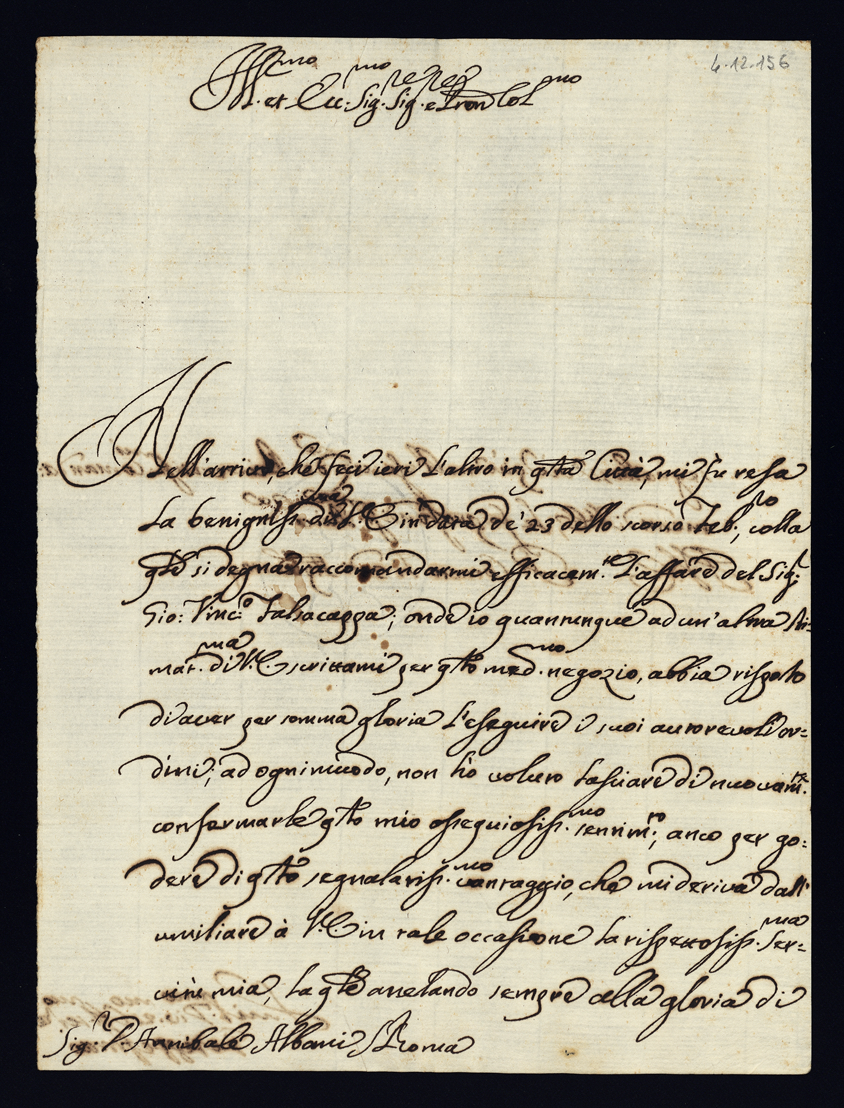 4.12.156
Ill.mo et Ecc.mo Sig.re Sig.re e Pron Col.mo
Nell'arrivo, che feci ieri l'altro in q.ta Città, mi fu resa
la benigniss.ma di V.E. in data de' 23 dello scorso Feb.ro, colla
q.le si degna raccomandarmi efficacem.te l'affare del Sig.r
Gio: Vinc.o Falsacappa; onde io quantunque ad un'altra sti=
mat.ma di V.E. scrittami per q.to med.mo negozio, abbia risposto
di aver per somma gloria l'eseguire i suoi autorevoli or=
dini; ad ogni modo, non hò voluto lasciare di nuovam.te
confermarle q.to mio ossequiosiss.mo sentim.to; anco per go=
dere di q.to segnalatiss.mo vantaggio, che mi deriva dall'
umiliare à V.E. in tale occasione la rispettosiss.ma Ser=
vitù mia, la q.le anelando sempre alla gloria di
Sig.r D. Annibale Albani Roma